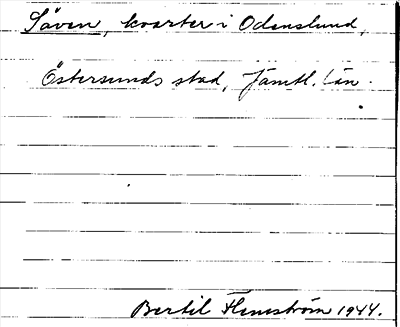 Säven, kvarter i Odenslund,
Östersunds stad, Jämtl. län.
Bertil Flemström 1944.